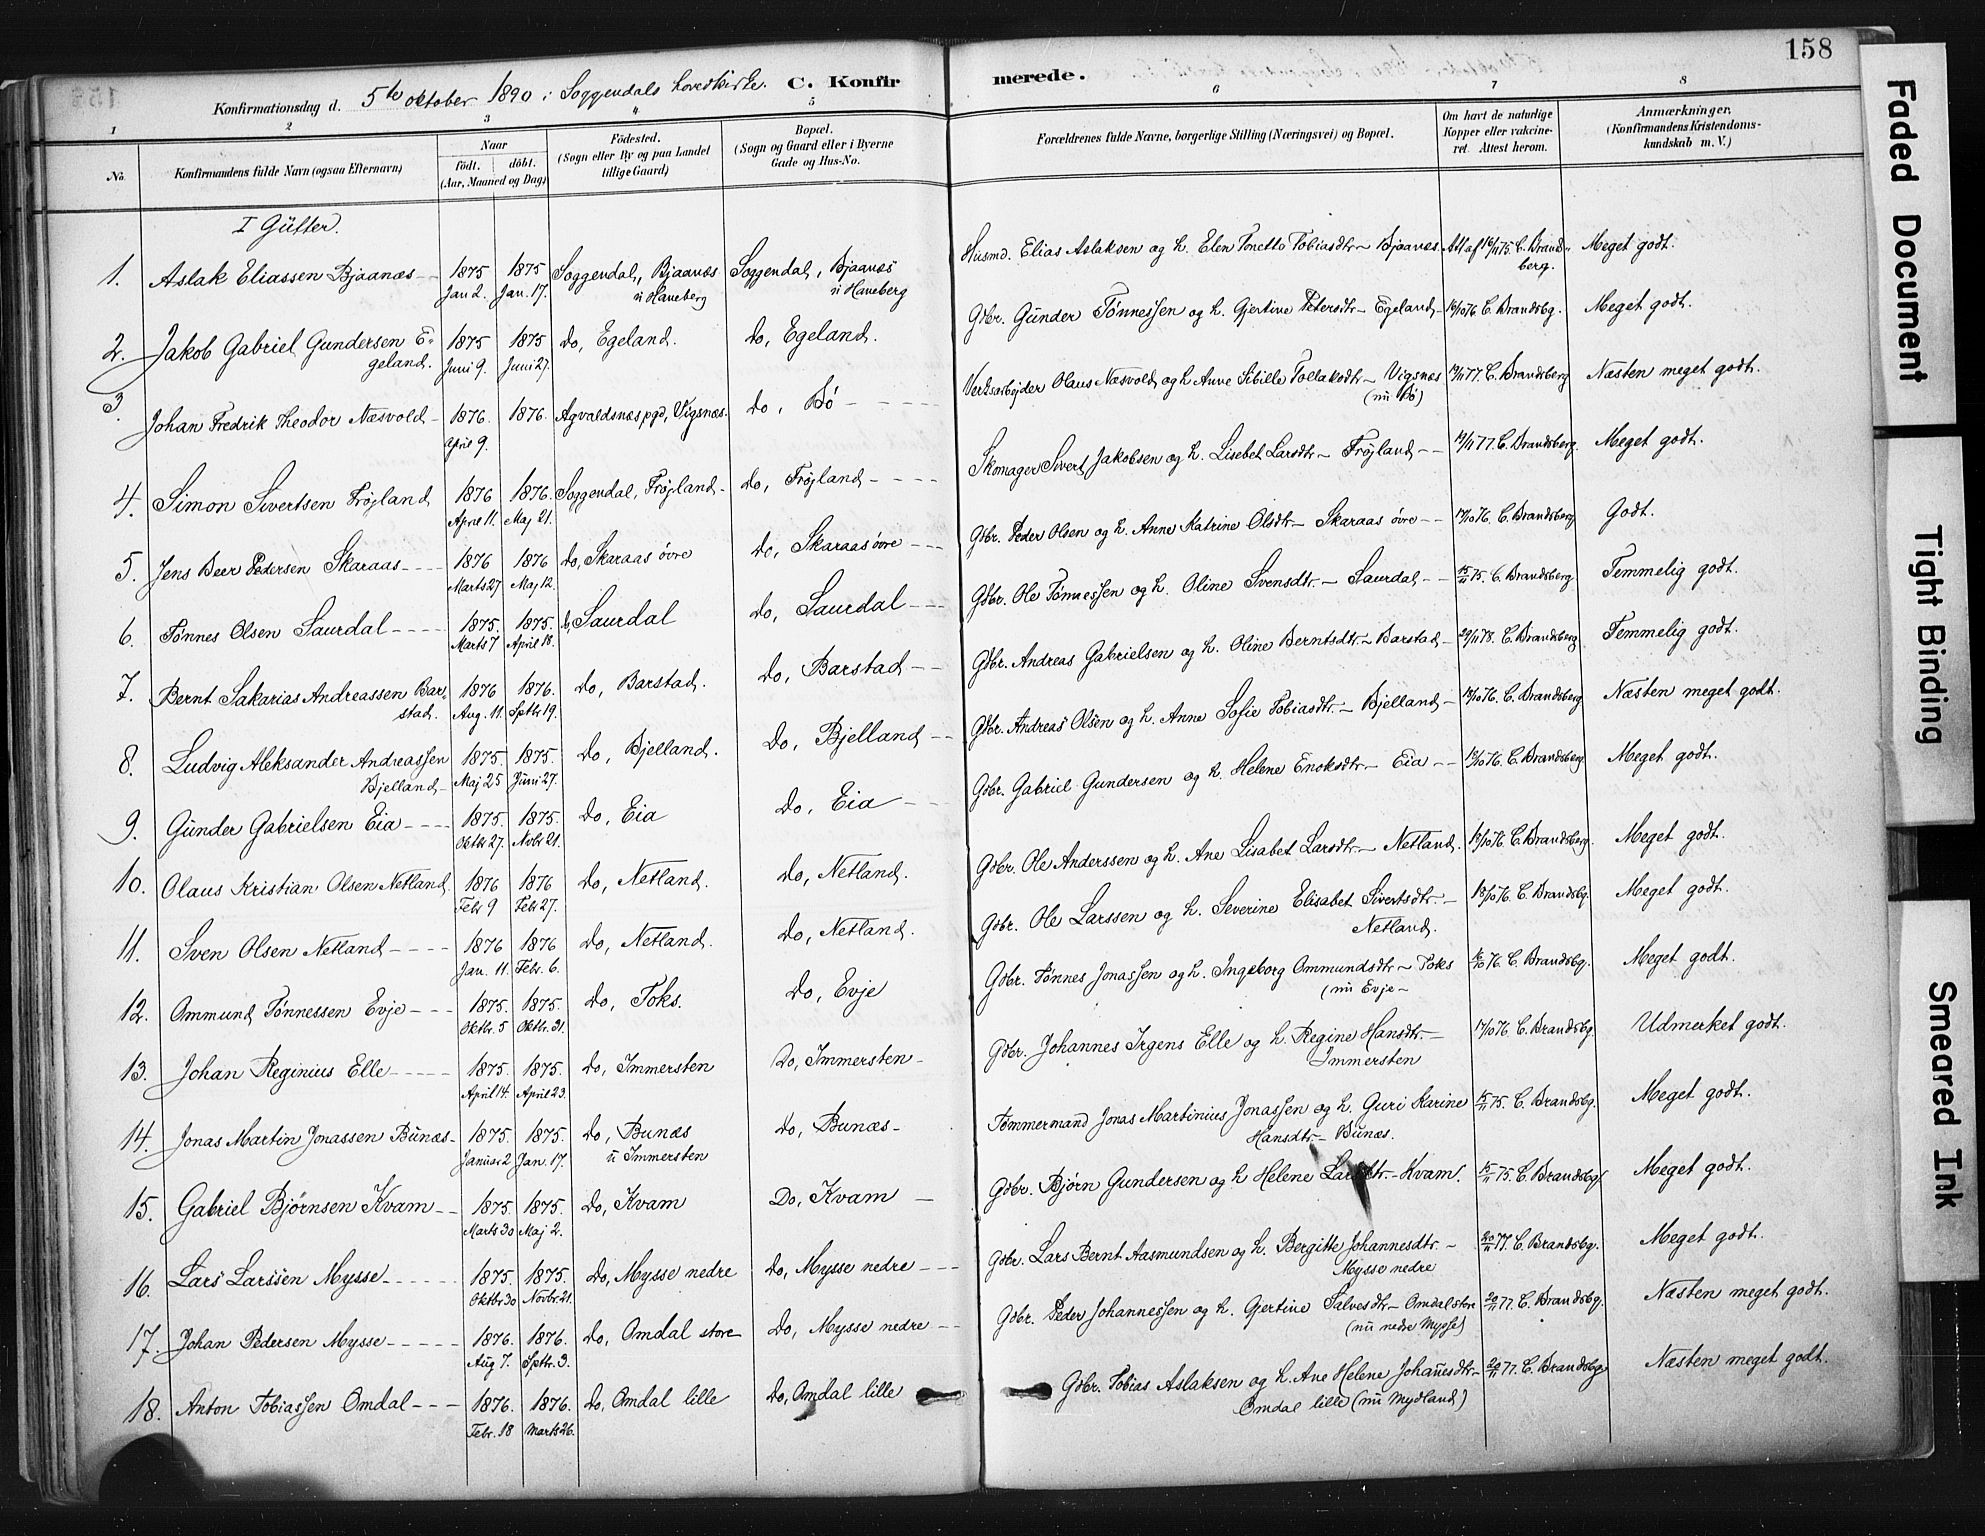 158
Konfirmationsdag d. 5te oktober 1890 i Soggendals hovedkirke. C. Konfirmerede.
1 2 3 4 5 6 7 8
No. Konfirmandens fulde Navn (ogsaa Efternavn) Naar födt. döbt. (Aar, Maaned og Dag) Födested. (Sogn eller By og paa Landet tillige Gaard) Bopæl. (Sogn og Gaard eller i Byerne Gade og Hus-No. Forældrenes fulde Navne, borgerlige Stilling (Næringsvei) og Bopæl. Om havt de naturlige Kopper eller vakcineret. Attest herom. Anmærkninger. (Konfirmandens Kristendomskundskab m. V.)
I Gutter.
1. Aslak Eliassen Bjaanæs 1875 Jan 2. 1875 Jan. 17. Soggendal, Bjaanæs u Haneberg Soggendal, Bjaanæs u Haneberg Husmd. Elias Aslaksen og h. Elen Tonetta Tobiasdtr Bjaanæs. Att af 16/11 75. C. Brandsberg. Meget godt.
2. Jakob Gabriel Gundersen Egeland. 1875 Juni 9. 1875 Juni 27. do, Egeland. do, Egeland. Gdbr. Gunder Tønnessen og h. Gjertine Petersdtr Egeland 16/10 76 C. Brandsbg. Meget godt.
3. Johan Fredrik Theodor Næsvold 1876. April 9. 1876. Agvaldsnæs pgd, Vigsnæs. do, Bö Verksarbejder Olaus Næsvold og h Anne Sibille Tollaksdtr Vigsnæs (nu Bö) 19/11 77. C. Brandsberg Næsten meget godt.
4. Simon Sivertsen Frøjland 1876 April 11. 1876. Maj 21. Soggendal, Frøjland do, Frøjland Skomager Sivert Jakobsen og h. Lisebet Larsdtr Frøjland 19/11 77 C. Brandsberg. Meget godt.
5. Jens Beer Pedersen Skaraas 1876 Marts 27 1876 Maj 12. do, Skaraas övre do, Skaraas övre Gdbr. Peder Olsen og h. Anne Katrine Olsdtr Skaraas övre 17/10 76. C. Brandsberg Godt.
6. Tønnes Olsen Saurdal 1875. Marts 7 1875. April 18. do, Saurdal do, Saurdal Gdbr. Ole Tønnessen og h. Oline Svensdtr. Saurdal 15/11 75. C. Brandsberg. Temmelig godt.
7. Bernt Sakarias Andreassen Barstad. 1876 Aug. 11. 1876. Sptbr 19. do, Barstad. do, Barstad Gdbr. Andreas Gabrielsen og h. Oline Berntsdtr Barstad 29/11 78. C. Brandsberg Temmelig godt.
8. Ludvig Aleksander Andreassen Bjelland 1875. Maj 25 1875. Juni 27. do, Bjelland. do, Bjelland Gdbr. Andreas Olsen og h. Anne Sofie Tobiasdtr. Bjelland 18/10 76. C. Brandsberg Næsten meget godt.
9. Gunder Gabrielsen Eia 1875. Oktbr 27. 1875. Novbr 21. do, Eia do, Eia Gdbr. Gabriel Gundersen og h. Helene Enoksdtr Eia 13/10 76. C. Brandsberg Meget godt.
10. Olaus Kristian Olsen Netland 1876 Febr 9 1876 Febr 27. do, Netland. do, Netland. Gdbr. Ole Anderssen og h. Ane Lisabet Larsdtr Netland. 18/10 76 C. Brandsberg. Meget godt.
11. Sven Olsen Netland 1876 Jan. 11. 1876 Febr. 6. do, Netland. do, Netland. Gdbr. Ole Larssen og h. Severine Elisabet Sivertsdtr. Netland. 18/10 76. C. Brandsbg. Meget godt.
12. Ommund Tønnessen Evje 1875. Oktbr. 5 1875. Oktbr. 31. do, Toks. do, Evje Gdbr. Tønnes Jonassen og h. Ingeborg Ommundsdtr Toks (nu Evje 16/10 76. C. Brandsbg. Meget godt.
13. Johan Reginius Elle 1875. April 14. 1875. April 23. do, Immersten do, Immersten Gdbr. Johannes Irgens Elle og h. Regine Hansdtr. Immersten 17/10 76. C. Brandsbg. Udmerket godt.
14. Jonas Martin Jonassen Bunæs 1875. Januar 2 1875. Jan. 17. do, Bunæs u Immersten do, Bunæs Tømmermand Jonas Martinius Jonassen og h. Guri Karine Hansdtr Bunæs. 15/11 75. C. Brandsbg. Meget godt.
15. Gabriel Bjørnsen Kvam 1875. Marts 30 1875. Maj 2. do, Kvam do, Kvam Gdbr. Bjørn Gundersen og h Helene Larsdtr. Kvam. 15/11 75. C. Brandsbg. Meget godt.
16. Lars Larssen Mysse 1875. Oktbr 30 1875. Novbr. 21. do, Mysse nedre do, Mysse nedre Gdbr. Lars Bernt Aasmundsen og h. Bergitte Johannesdtr. Mysse nedre 20/11 77. C. Brandsbg. Meget godt.
17. Johan Pedersen Mysse 1876. Aug 7. 1876. Sptbr. 3. do, Omdal store do, Mysse nedre Gdbr. Peder Johannessen og h. Gjertine Salvesdtr Omdal store (nu nedre Mysse) 20/11 77. C. Brandsbg. Næsten meget godt.
18. Anton Tobiassen Omdal 1876. Febr. 18 1876. Marts 26. do, Omdal lille do, Omdal lille Gdbr. Tobias Aslaksen og h. Ane Helene Johanesdtr Omdal lille (nu Mydland) 20/11 77. C. Brandsbg. Næsten meget godt.
Faded Document
Tight Binding
Smeared Ink